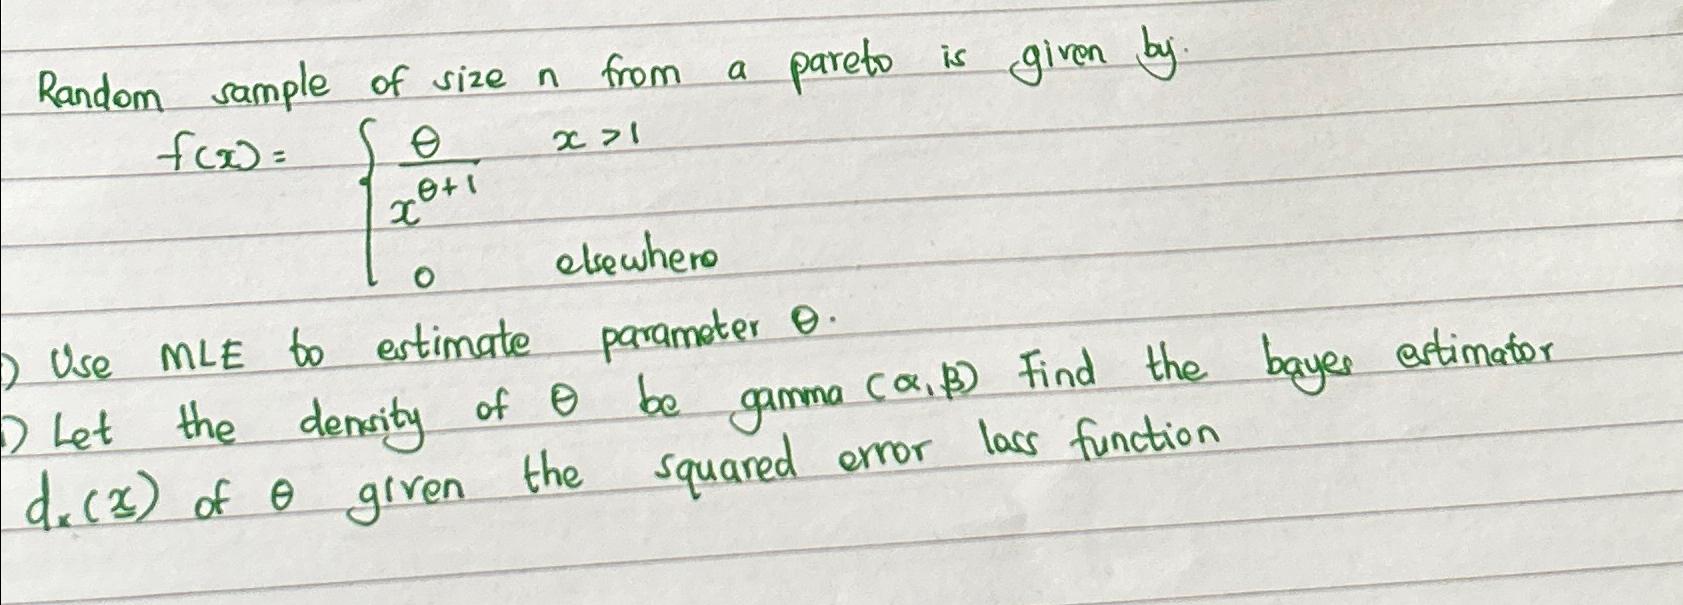 Random sample of size n from a pareto is given by.
f(x) = { θ / x^(θ+1) x > 1
0 elsewhere
) Use MLE to estimate parameter θ.
) Let the density of θ be gamma (α, β) Find the bayes estimator
dₓ(x) of θ given the squared error loss function